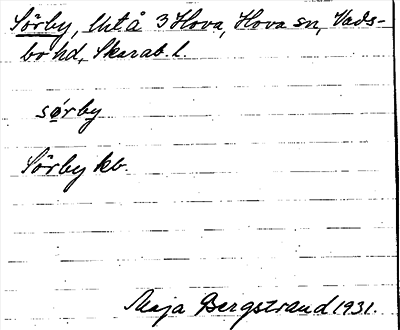 Sörby, Utå 3 Hova, Hova sn, Vads-
bo hd, Skarab. l.
sörby
Sörby kb.
Maja Bergstrand 1931.